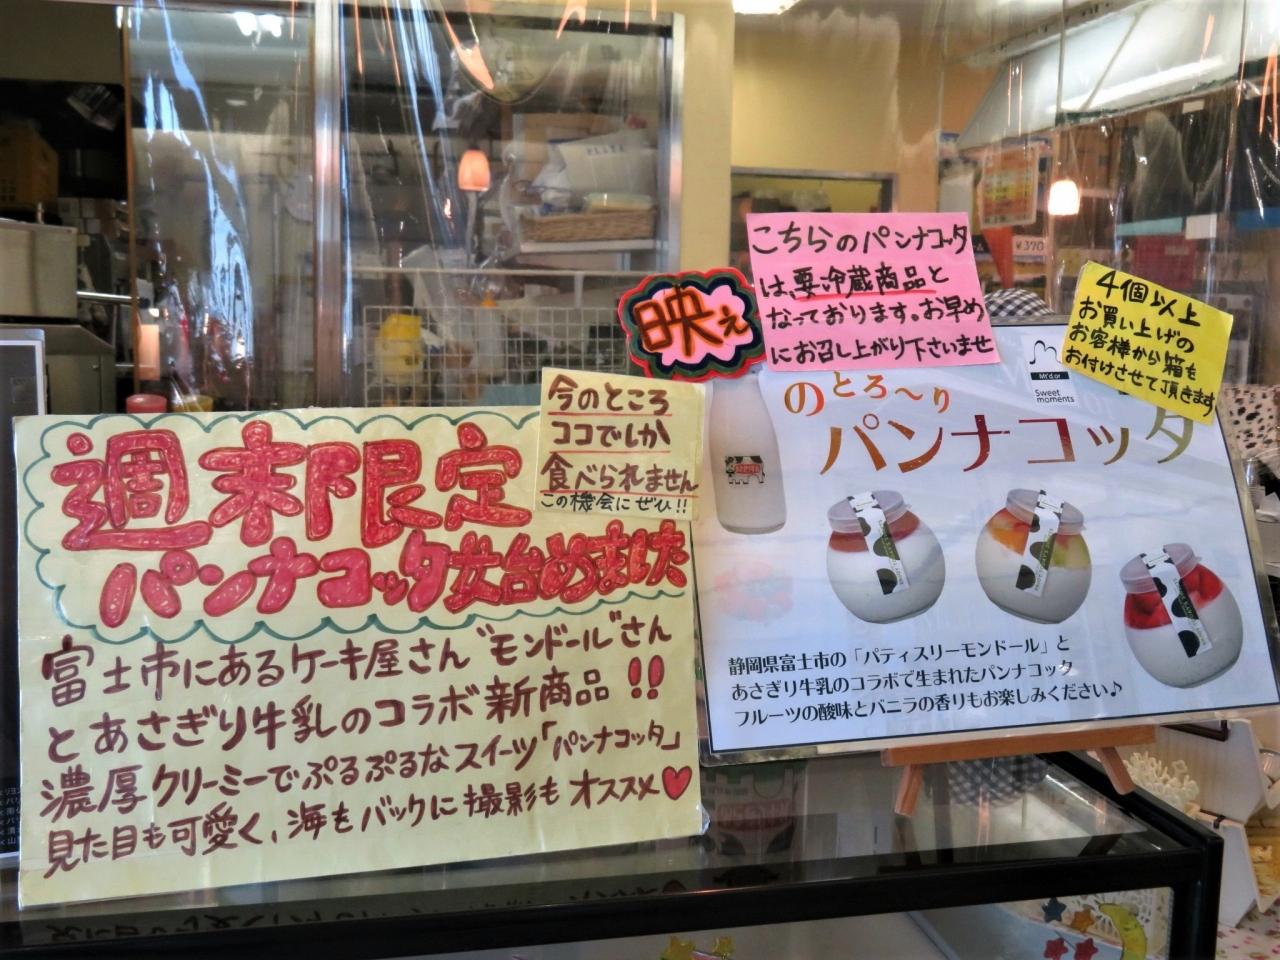 週末限定
パンナコッタ始めました
富士市にあるケーキ屋さん"モンドール"さん
とあさぎり牛乳のコラボ新商品!!
濃厚クリーミーでぷるぷるなスイーツ「パンナコッタ」
見た目も可愛く、海をバックに撮影もオススメ♥
今のところ
ココでしか
食べられません
この機会にぜひ!!
映え
こちらのパンナコッタ
は、要冷蔵商品と
なっております。お早め
にお召し上がり下さいませ
4個以上
お買い上げの
お客様から箱を
お付けさせて頂きます
Mt'd.or
Sweet
moments
のとろ〜り
パンナコッタ
静岡県富士市の「パティスリーモンドール」と
あさぎり牛乳のコラボで生まれたパンナコッタ
フルーツの酸味とバニラの香りもお楽しみください♪
¥370